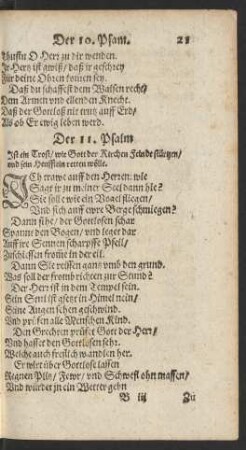 Der 10. Psam. 21
thustu O Hertz zu dir wenden.
Jr Hertz ist gwiß/ daß jr geschrey
Für deine Ohren komen sey.
Daß du schaffest dem Walsen recht/
Dem Armen vnd ellenden Knecht.
Daß der Gottloß nit trutz auff Erd/
Als ob Er ewig leben werd.
Der 11. Psalm
Ist ein Trost/ wie Gott der Kirchen Feinde stürtzen/
vnd sein Heufflein retten wölle.
ICh trawe auff den Herren: wie
Sagt jr zu meiner Seel dann hie?
Sie soll ewie ein Vogel fliegen/
Vnd sich auff ewre Berge schmiegen?
Dann sihe/ der Gottlosen schar
Spanne den Bogen/ vnd leget dar
Auff jre Sennen scharpffe Pfeil/
Zuschiessen fromme in der eil.
Dann Sie reissen gantz vmb den grund.
Was soll der fromb richten zur Stund?
Der Herr ist in dem Tempel sein.
Sein Sent ist gsetzt in Himel nein/
Seine Augen sehen geschwind.
Vnd prüfen alle Menschen Kind.
Den Grechten prüfet Gott der Herr/
Vnd hasset den Gottlosen sehr.
Welche auch frevlich wandlen her.
Er wirt über Gottlose lassen
Regnen Plitz/ Fewr/ vnd Schwefl ohn massen/
Vnd würdet jn ein Wetter gebn
B iij Zu